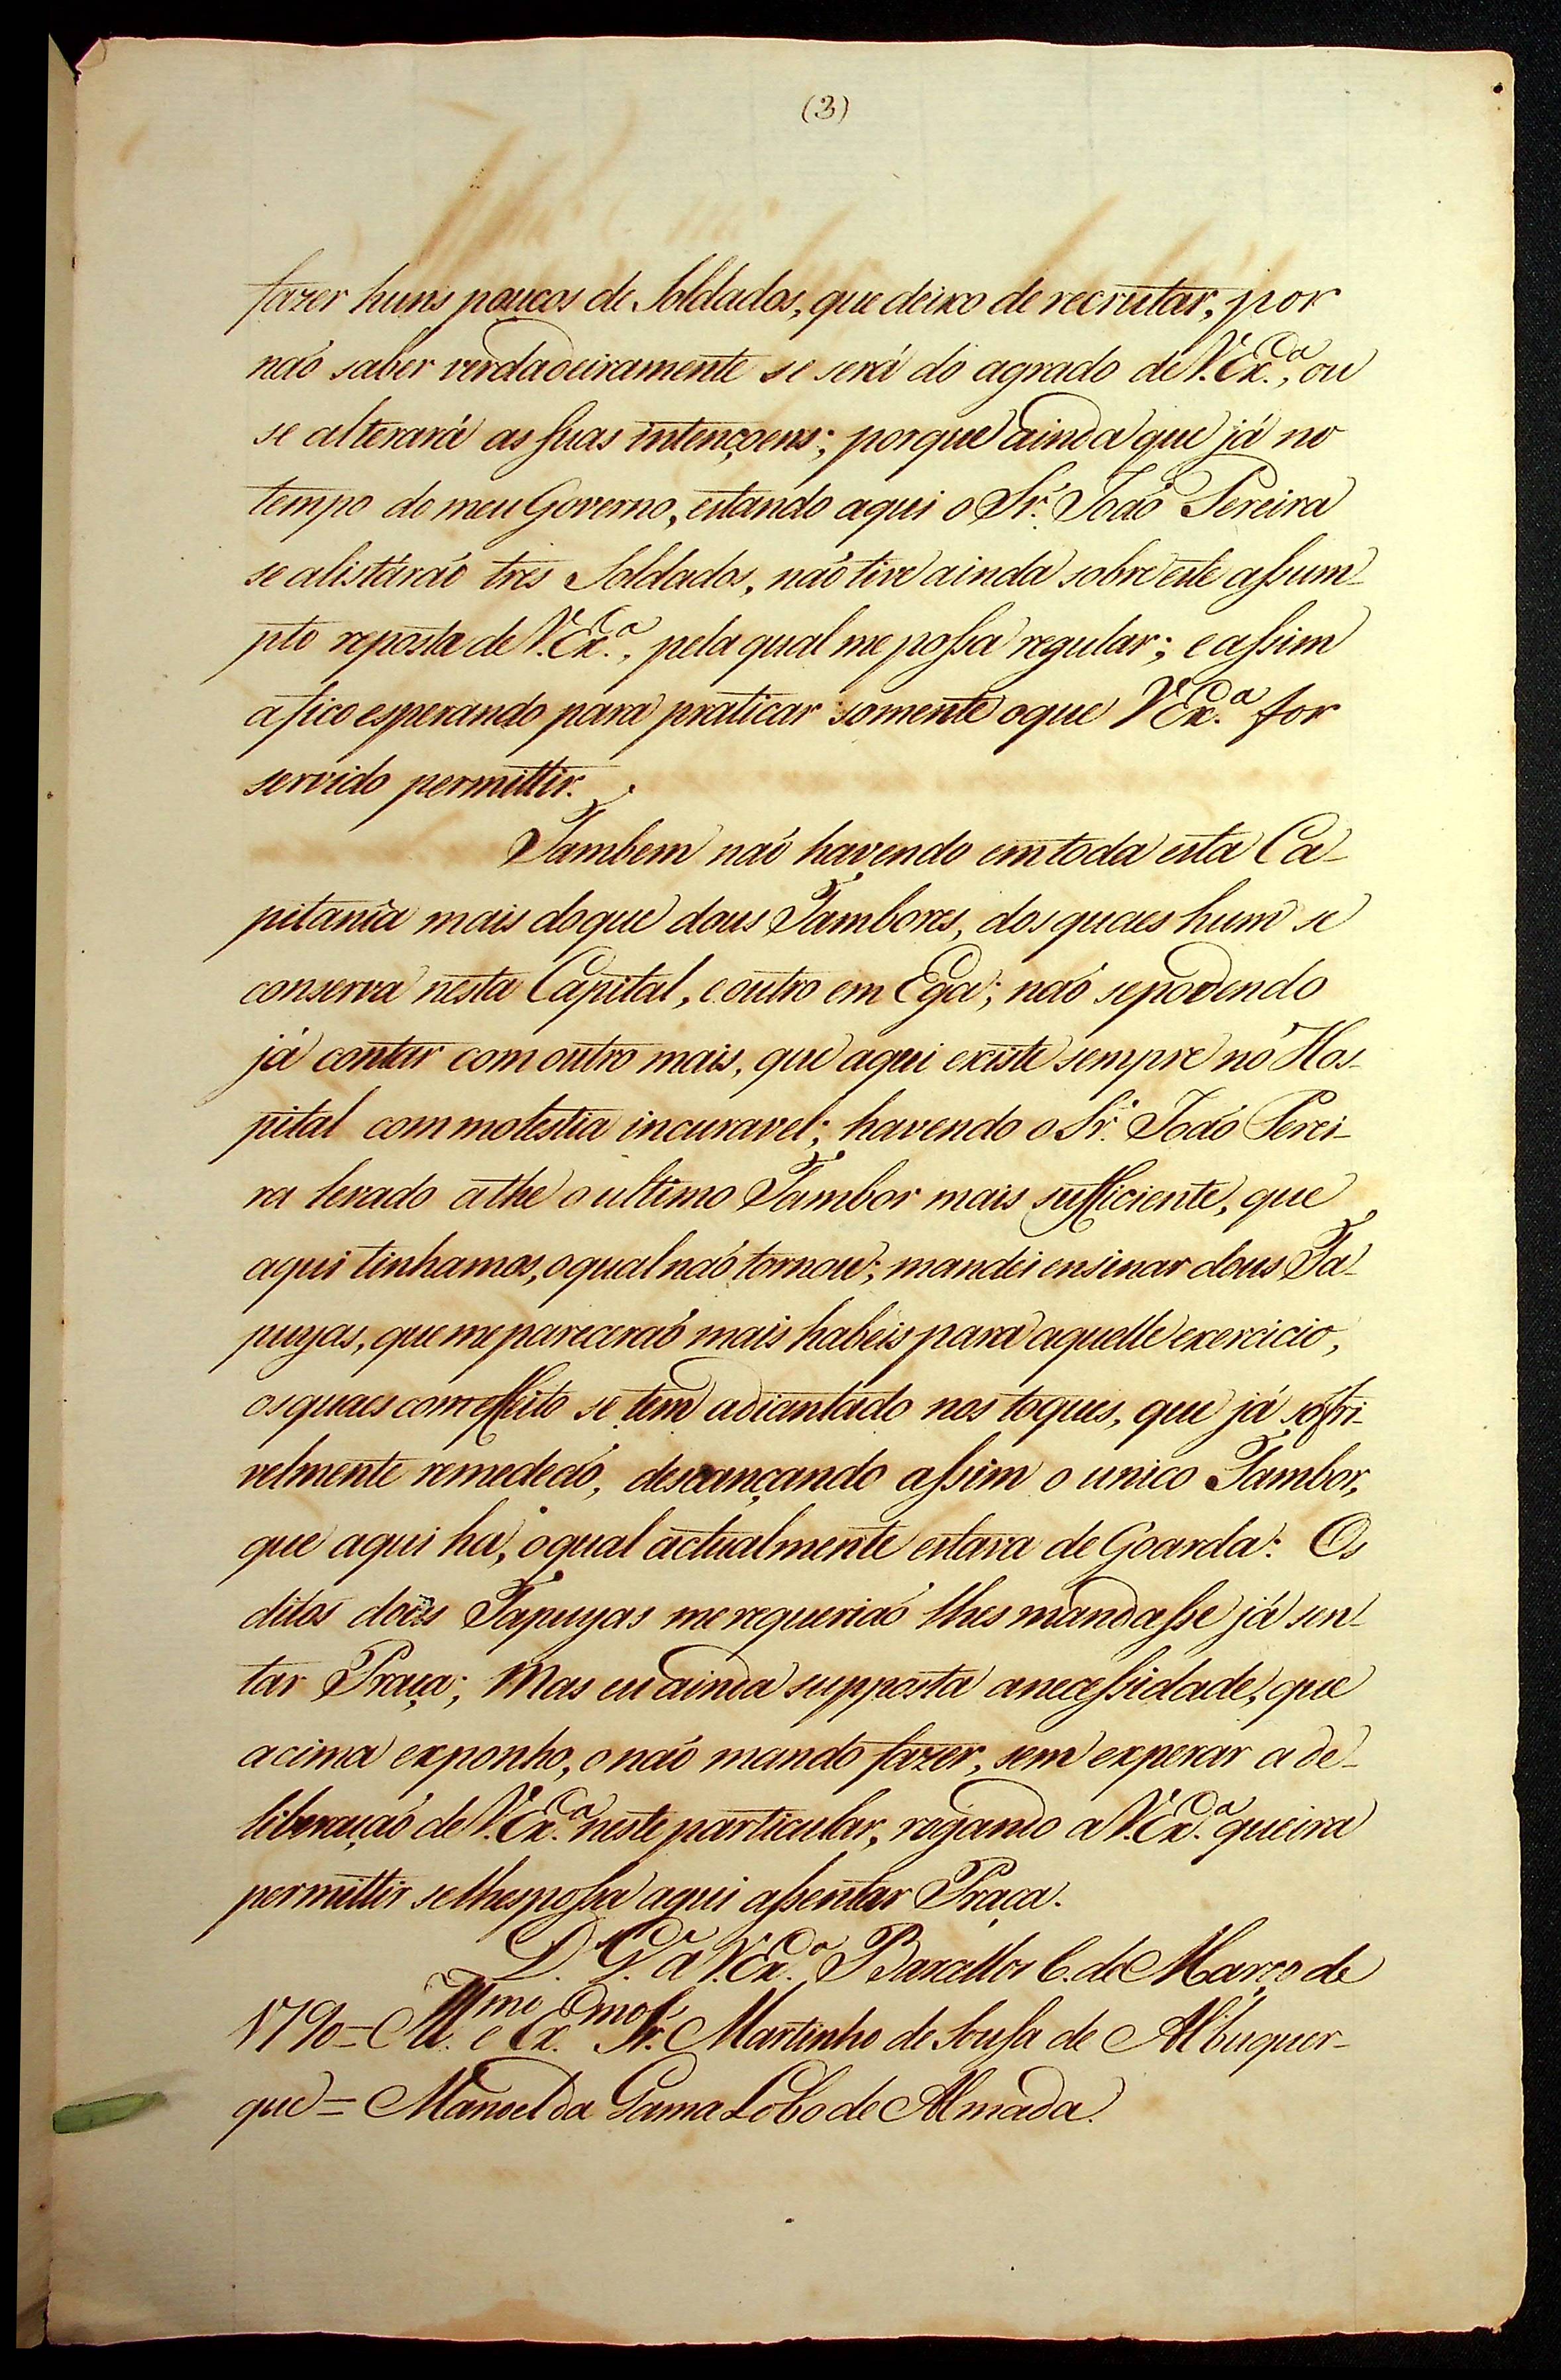 (3)
fazer huns poucos de Soldados, que deixo de recrutar, por
naõ saber verdadeiramente se será do agrado de V. Ex.ª, ou
se alterará as suas intençoens; porque ainda que já no
tempo do meu Governo, estando aqui o Sr. Joaõ Pereira
se alistáraõ tres Soldados, naõ tive ainda sobre este assum-
pto reposta de V. Ex.ª, pela qual me possa regular; e assim
a fico esperando para praticar somente o que V Ex.ª for
servido permittir.
Tambem naõ havendo em toda esta Ca-
pitania mais do que dous Tambores, dos quaes hum se
conserva nesta Capital, e outro em Ega; naõ se podendo
já contar com outro mais, que aqui existe sempre nó Hos-
pital com molestia incuravel; havendo o Sr. Joaõ Perei-
ra levado athe o ultimo Tambor mais sufficiente, que
aqui tinhamos, o qual naõ tornou; mandei ensinar dous Ta-
puyas, que me pareceraõ mais habeis para aquelle exercicio,
os quaes com effeito se tem adiantado nos toques, que já soffri-
velmente remedeaõ, descançando assim o unico Tambor,
que aqui ha, o qual actualmente estava de Goarda: Os
ditos dois Tapuyas me requeriaõ lhes mandasse já sen-
tar Praça; Mas eu ainda supposta a necessidade, que
acima exponho, o naõ mando fazer, sem experar a de-
liberaçaõ de V. Ex.ª neste particular, rogando a V. Ex.ª queira
permittir se lhes possa aqui assentar Praça.
D. G. a V. Ex.ª Barcellos 6. de Março de
1790 = Ill.mo e Ex.mo Sr. Martinho de Sousa de Albuquer-
que = Manoel da Gama Lobo de Almada.